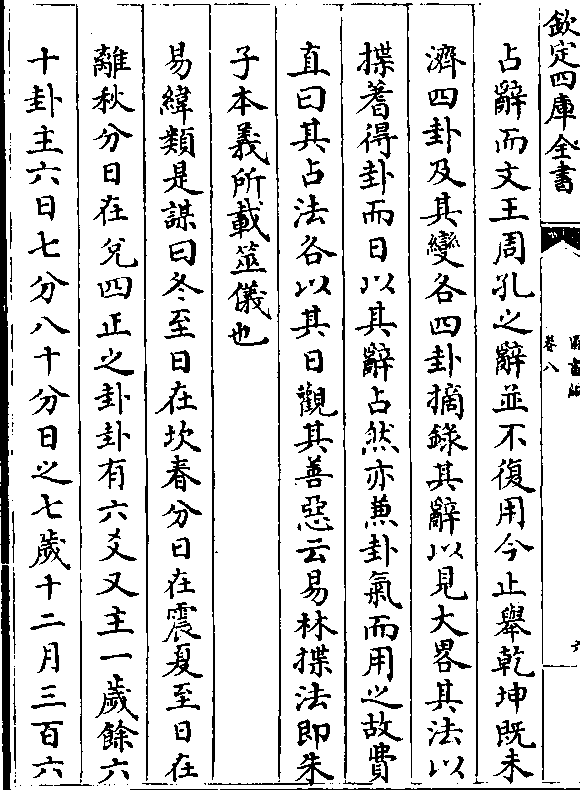 欽定四庫全書
圖書編
卷八
六
占辭而文王周孔之辭並不復用今止舉乾坤既未
濟四卦及其變各四卦摘錄其辭以見大畧其法以
揲蓍得卦而日以其辭占然亦兼卦氣而用之故費
直曰其占法各以其日觀其善惡云易林揲法即朱
子本義所載筮儀也
易緯類是謀曰冬至日在坎春分日在震夏至日在
離秋分日在兌四正之卦卦有六爻又主一歲餘六
十卦主六日七分八十分日之七歲十二月三百六